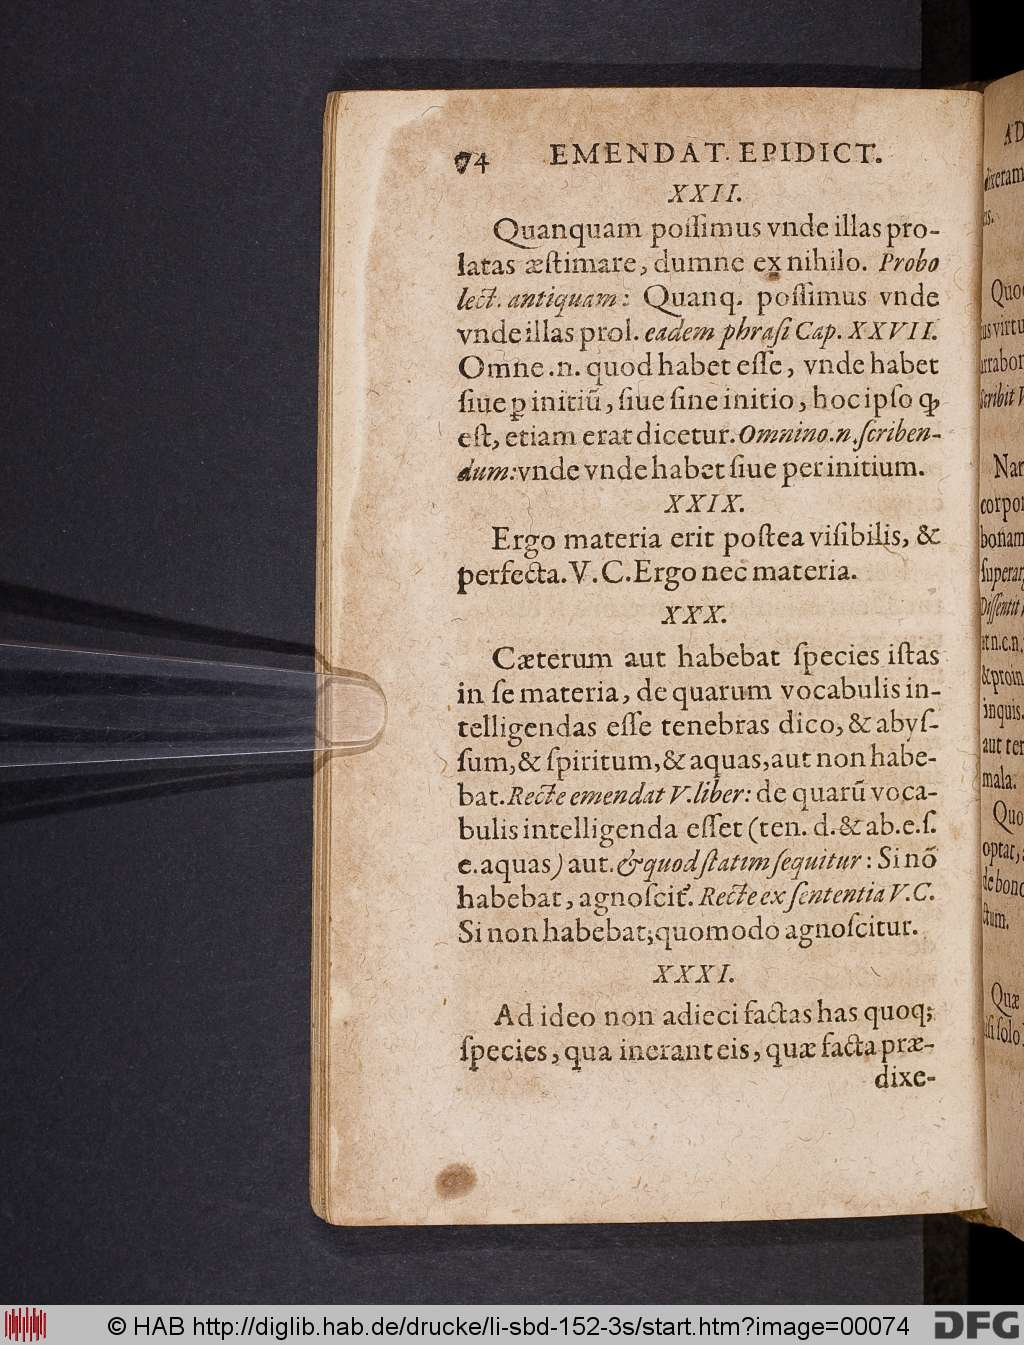 74 EMENDAT. EPIDICT.
XXII.
Quanquam poſſimus vnde illas pro-
latas æſtimare, dumne ex nihilo. Probo
lect. antiquam: Quanq. poſſimus vnde
vnde illas prol. eadem phraſi Cap. XXVII.
Omne .n. quod habet eſſe, vnde habet
ſiue ꝑ initiũ, ſiue ſine initio, hoc ipſo ꝙ
eſt, etiam erat dicetur. Omnino .n. ſcriben-
dum: vnde vnde habet ſiue per initium.
XXIX.
Ergo materia erit poſtea viſibilis, &
perfecta. V. C. Ergo nec materia.
XXX.
Cæterum aut habebat ſpecies iſtas
in ſe materia, de quarum vocabulis in-
telligendas eſſe tenebras dico, & abyſ-
ſum, & ſpiritum, & aquas, aut non habe-
bat. Recte emendat V. liber: de quarũ voca-
bulis intelligenda eſſet (ten. d. & ab. e. ſ.
e. aquas) aut. & quod ſtatim ſequitur: Si nõ
habebat, agnoſcit᷑. Recte ex ſententia V. C.
Si non habebat; quomodo agnoſcitur.
XXXI.
Ad ideo non adieci factas has quoq;
ſpecies, qua inerant eis, quæ facta præ-
dixe-
AD
dixeram
Quo
virtu
arrabor
Scribit V
Nar
corpor
bonam
ſuperar
Diſſentit
at n. c. n.
& proin
inquis.
aut ter
mala.
Quo
optat,
de bono
ctum.
Quæ
ſolo
© HAB http://diglib.hab.de/drucke/li-sbd-152-3s/start.htm?image=00074
DFG